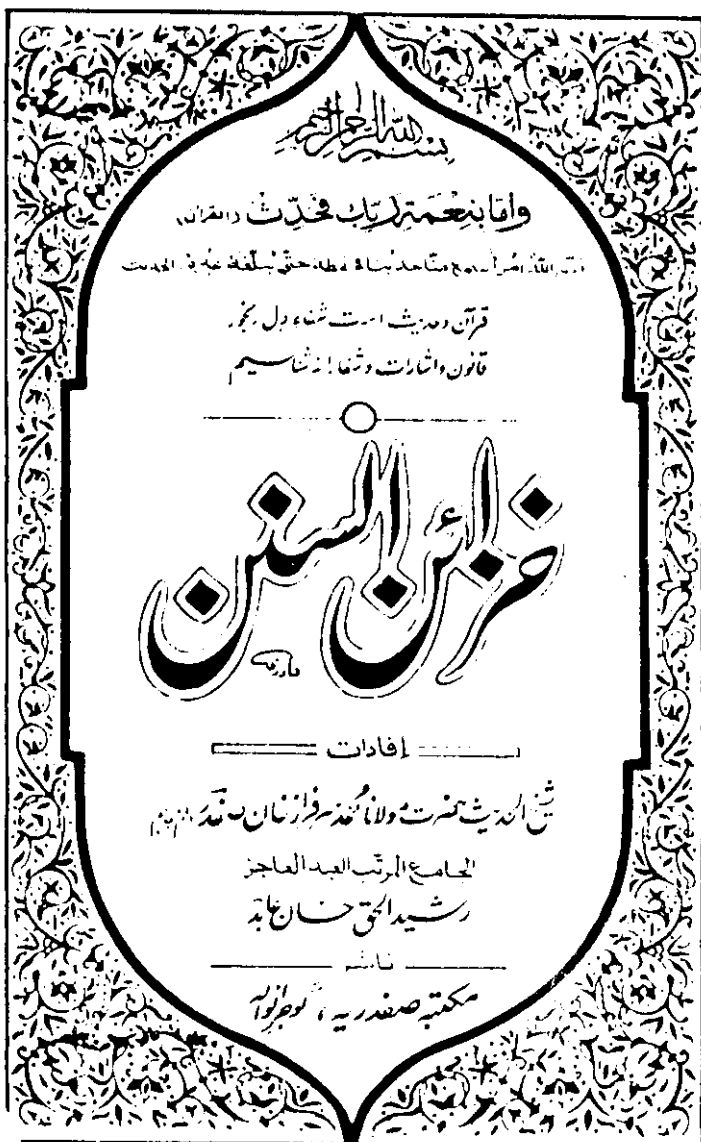 بسم الله الرحمن الرحيم
واما بنعمة ربك فحدث (القرآن)
قرآن و حدیث است شفاء دل رنجور
قانون و اشارات و شفا را نه شناسیم
خزائن السنن
إفادات
شیخ الحدیث حضرت مولانا محمد سرفراز خان صفدر
الجامع المرتب العبد العاجز
رشید الحق خان عابد
ناشر
مکتبہ صفدریہ، گوجرانوالہ